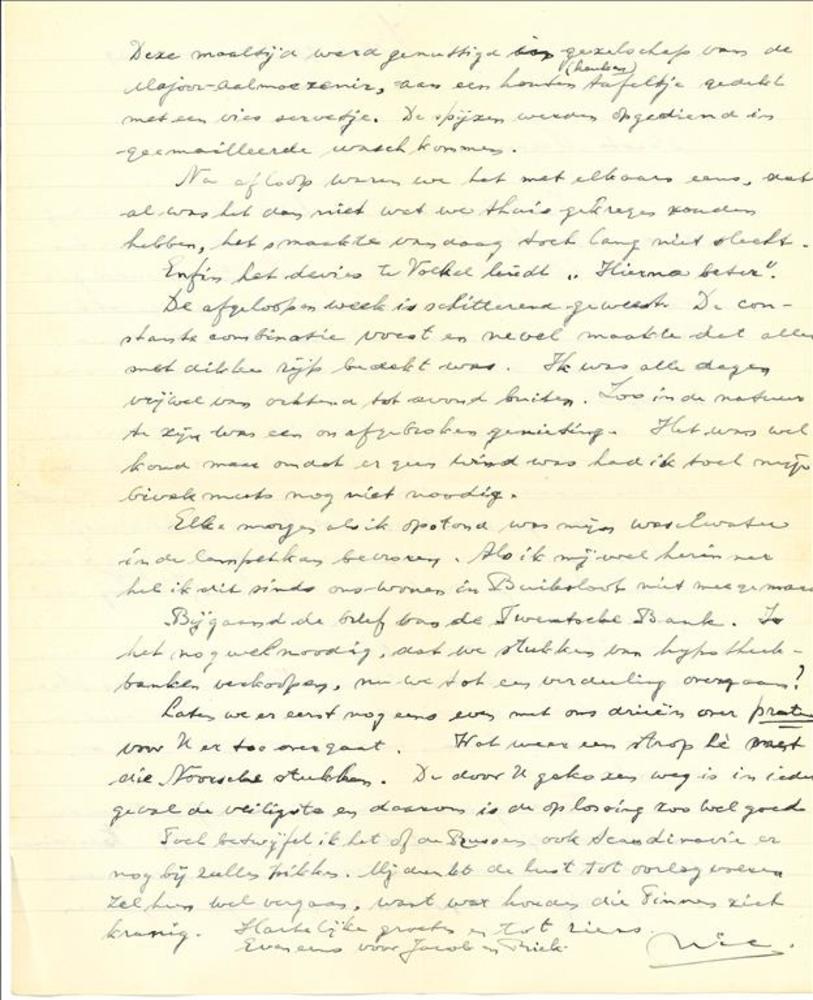 Deze maaltijd werd genuttigd in gezelschap van de
Majoor-Aalmoezenier, aan een houten (keuken) tafeltje gedekt
met een vies servetje. De spijzen werden opgediend in
geemailleerde waschkommen.
Na afloop waren we het met elkaar eens, dat
al was het dan niet wat we thuis gekregen zouden
hebben, het smaakte vandaag toch lang niet slecht.
Enfin het devies te Volkel luidt „Hierna beter".
De afgeloopen week is schitterend geweest. De con-
stante combinatie vorst en nevel maakte dat alles
met dikke rijp bedekt was. Ik was alle dagen
vrijwel van ochtend tot avond buiten. Zoo in de natuur
te zijn was een onafgebroken genieting. Het was wel
koud maar omdat er geen wind was had ik toch mijn
bivakmuts nog niet noodig.
Elke morgen als ik opstond was mijn waschwater
in de lampetkan bevroren. Als ik mij wel herinner
heb ik dit sinds ons wonen in Buiksloot niet meegemaa
Bijgaand de brief van de Twentsche Bank. Is
het nog wel noodig, dat we stukken van hypotheek-
banken verkoopen, nu we tot een verdeeling overgaan?
Laten we er eerst nog eens even met ons drieën over praten
voor U er toe overgaat. Wat weer een strop hè met
die Noorsche stukken. De door U gekozen weg is in ieder
geval de veiligste en daarom is de oplossing zoo wel goed
Toch betwijfel ik het of de Russen ook Scandinavië er
nog bij zullen pikken. Mij dunkt de lust tot oorlogvoeren
zal hun wel vergaan, want wat houden die Finnen zich
kranig. Hartelijke groeten en tot ziens.
Evaneens voor Jacob en Riek.